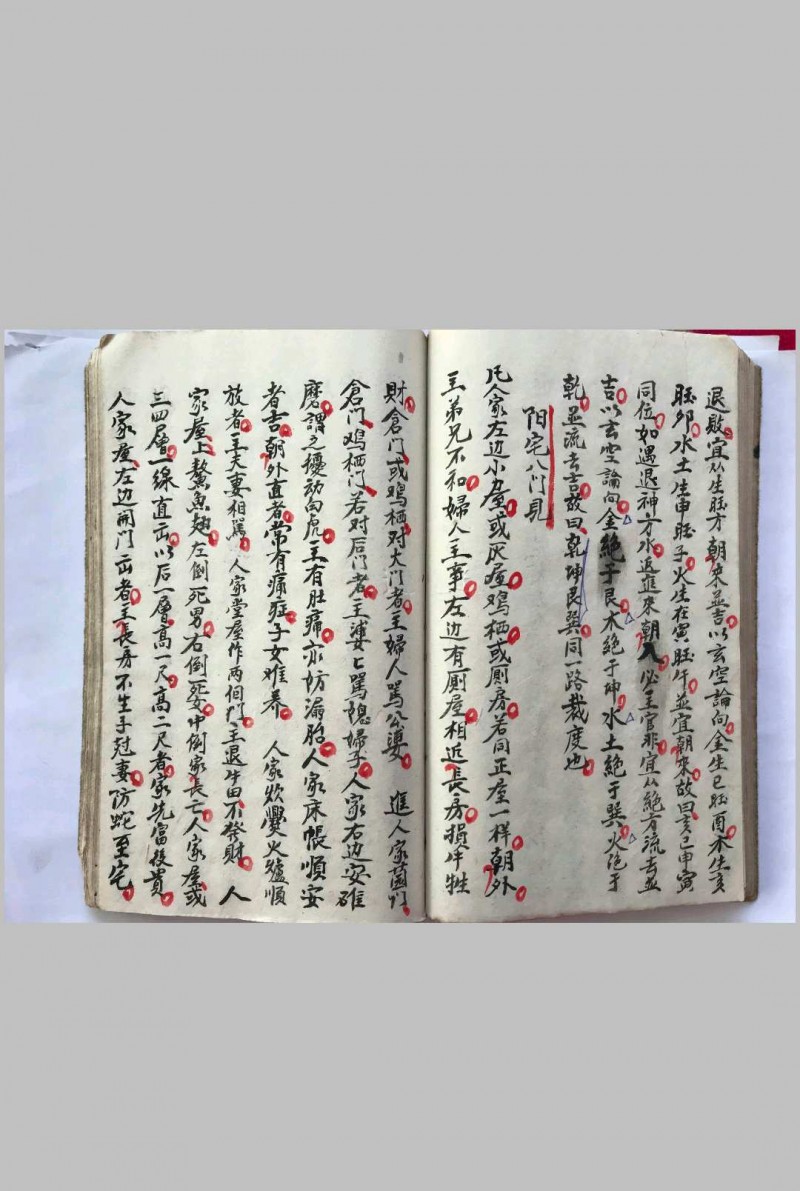 退敗宜从生旺方朝來並吉以玄空論向金生巳旺酉木生亥
旺卯水土生申旺子火生在寅旺午並宜朝來故曰亥巳申寅
同位如遇退神方水返進來朝入必主官非宜从絶方流去並
吉以玄空論向金絶于艮木絶于坤水土絶于巽火絶于
乾並流去吉故曰乾坤艮巽同一路裁度也
阳宅八门見
凡人家左边小屋或灰屋鸡栖或厕房若同正屋一样朝外
主弟兄不和婦人主事左边有厕屋相近長房損牛牲
財倉门或鸡栖对大门者主婦人駡公婆 進人家菌门
倉门鸡栖门若对后门者主婆匕駡媳婦子人家右边安碓
磨謂之擾动白虎主有肚痛亦妨漏胎人家床帳順安
者吉朝外直者常有痛症子女难养 人家炊爨火爐順
放者主夫妻相駡人家堂屋作两個门主退牛田不發財 人
家屋上鰲魚翅左倒死男右倒死女中倒家長亡人家屋或
三四層一線直出以后一層高一尺高二尺者家先富後貴
人家屋左边開门出者主長房不生子尅妻防蛇至宅